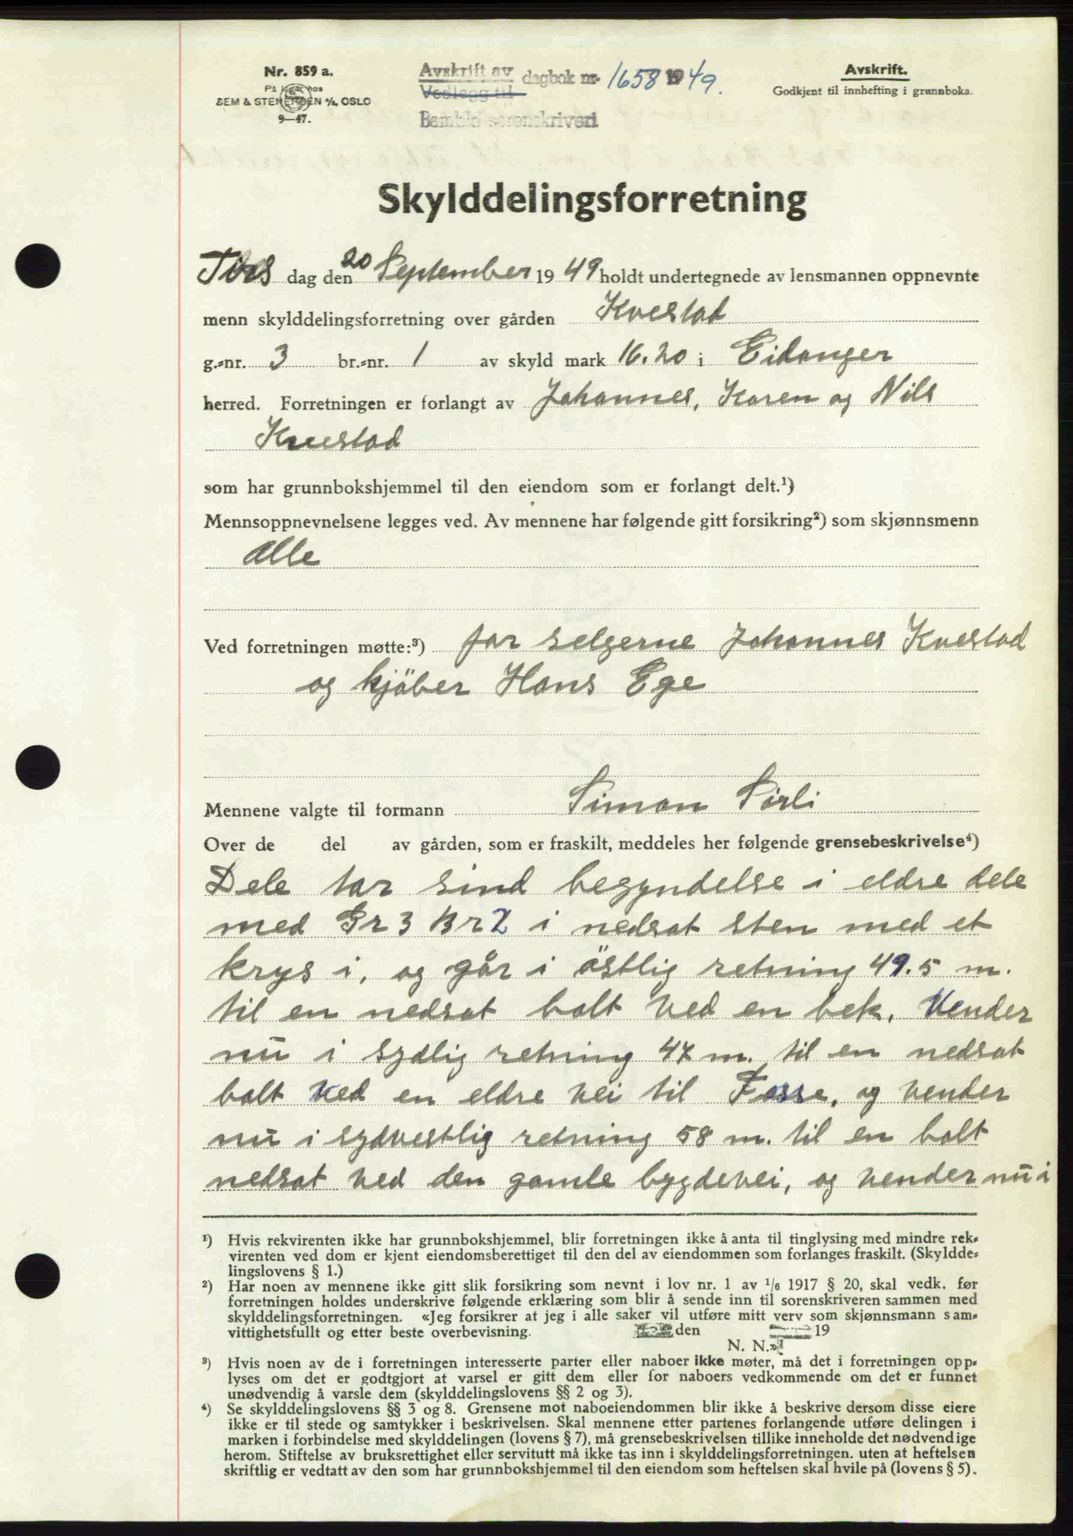 Nr. 859 a.
På lager hos
SEM & STENERSEN A/S, OSLO
9—47.
Avskrift av dagbok nr. 1658 1949.
Vedlegg til
Bamble sorenskriveri
Avskrift.
Godkjent til innhefting i grunnboka.
Skylddelingsforretning
Tirsdag den 20 September 1949 holdt undertegnede av lensmannen oppnevnte
menn skylddelingsforretning over gården Kvestad
g.-nr. 3 br.-nr. 1 av skyld mark 16.20 i Eidanger
herred. Forretningen er forlangt av Johannes, Karen og Nils
Kvestad
som har grunnbokshjemmel til den eiendom som er forlangt delt.¹)
Mennsoppnevnelsene legges ved. Av mennene har følgende gitt forsikring²) som skjønnsmenn
alle
Ved forretningen møtte:³) for selgerne Johannes Kvestad
og kjöber Hans Ege
Mennene valgte til formann Simon Sörli
Over de del av gården, som er fraskilt, meddeles her følgende grensebeskrivelse⁴)
Dele tar sind begyndelse i eldre dele
med Gr 3 Br 2 i nedsat sten med et
krys i, og går i östlig retning 49.5 m.
til en nedsat bolt ved en bek. Vender
nu i sydlig retning 47 m. til en nedsat
bolt ved en eldre vei til Fosse, og vender
nu i sydvestlig retning 58 m. til en bolt
nedsat ved den gamle bygdevei, og vender nu i
¹) Hvis rekvirenten ikke har grunnbokshjemmel, blir forretningen ikke å anta til tinglysing med mindre rek-
virenten ved dom er kjent eiendomsberettiget til den del av eiendommen som forlanges fraskilt. (Skyldde-
lingslovens § 1.)
²) Har noen av mennene ikke gitt slik forsikring som nevnt i lov nr. 1 av 1/6 1917 § 20, skal vedk. før
forretningen holdes underskrive følgende erklæring som blir å sende inn til sorenskriveren sammen med
skylddelingsforretningen. «Jeg forsikrer at jeg i alle saker vil utføre mitt verv som skjønnsmann sam-
vittighetsfullt og etter beste overbevisning. den 19
N. N.»
³) Hvis noen av de i forretningen interesserte parter eller naboer ikke møter, må det i forretningen opp-
lyses om det er godtgjort at varsel er gitt dem eller for naboers vedkommende om det er funnet
unødvendig å varsle dem (skylddelingslovens §§ 2 og 3).
⁴) Se skylddelingslovens §§ 3 og 8. Grensene mot naboeiendommen blir ikke å beskrive dersom disse eiere
ikke er til stede og samtykker i beskrivelsen. Skal mennene etter partenes forlangende utføre delingen i
marken i forbindelse med skylddelingen (lovens § 7), må grensebeskrivelsen tillike inneholde det nødvendige
herom. Stiftelse av bruksrettighet eller servitutt må ikke tas inn i skylddelingsforretningen. uten at heftelsen
skriftlig er vedtatt av den som har grunnbokshjemmel til den eiendom som heftelsen skal hvile på (lovens § 5).